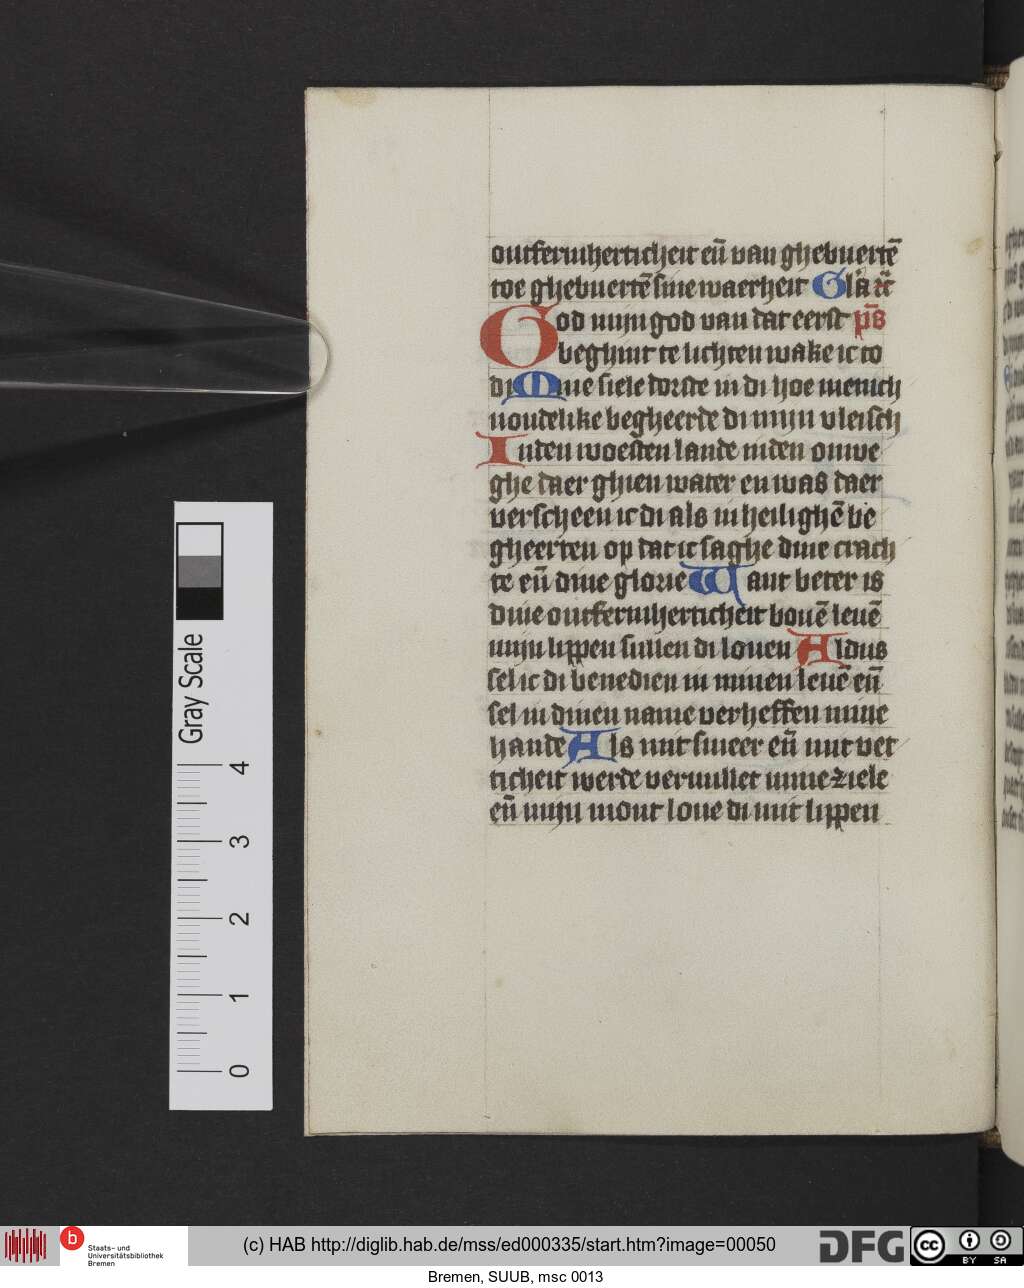 ontfermherticheit eñ van ghebuertē
toe ghebuertē sine waerheit Gl'a et̄
God mijn god van dat eerst p̄s
beghint te lichten wake ic to
di Mine siele dorste in di hoe menich
uoudelike begheerde di mijn vleisch
Inden woesten lande inden onwe
ghe daer ghien water en was daer
verscheen ic di als in heilighē be
gheerten op dat ic saghe dine crach
te eñ dine glorie Want beter is
dine ontfermherticheit bouē leuē
mijn lippen sullen di louen Aldus
sel ic di benedien in minen leuē eñ
sel in dinen name verheffen mine
hande Als mit smeer eñ mit vet
ticheit werde veruullet mine ziele
eñ mijn mont loue di mit lippen
Gray Scale
4
3
2
1
0
b Staats- und
Universitätsbibliothek
Bremen
(c) HAB http://diglib.hab.de/mss/ed000335/start.htm?image=00050
DFG
cc BY SA
Bremen, SUUB, msc 0013